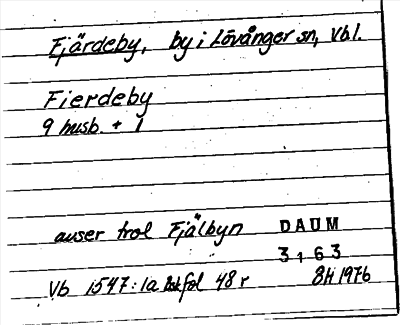 Fjärdeby, by i Lövånger sn, Vbl.
Fierdeby
9 husb. + 1
auser trol Fjälbyn DAUM
3163
Vb 1547: 1a fol 48 r 8H 1976